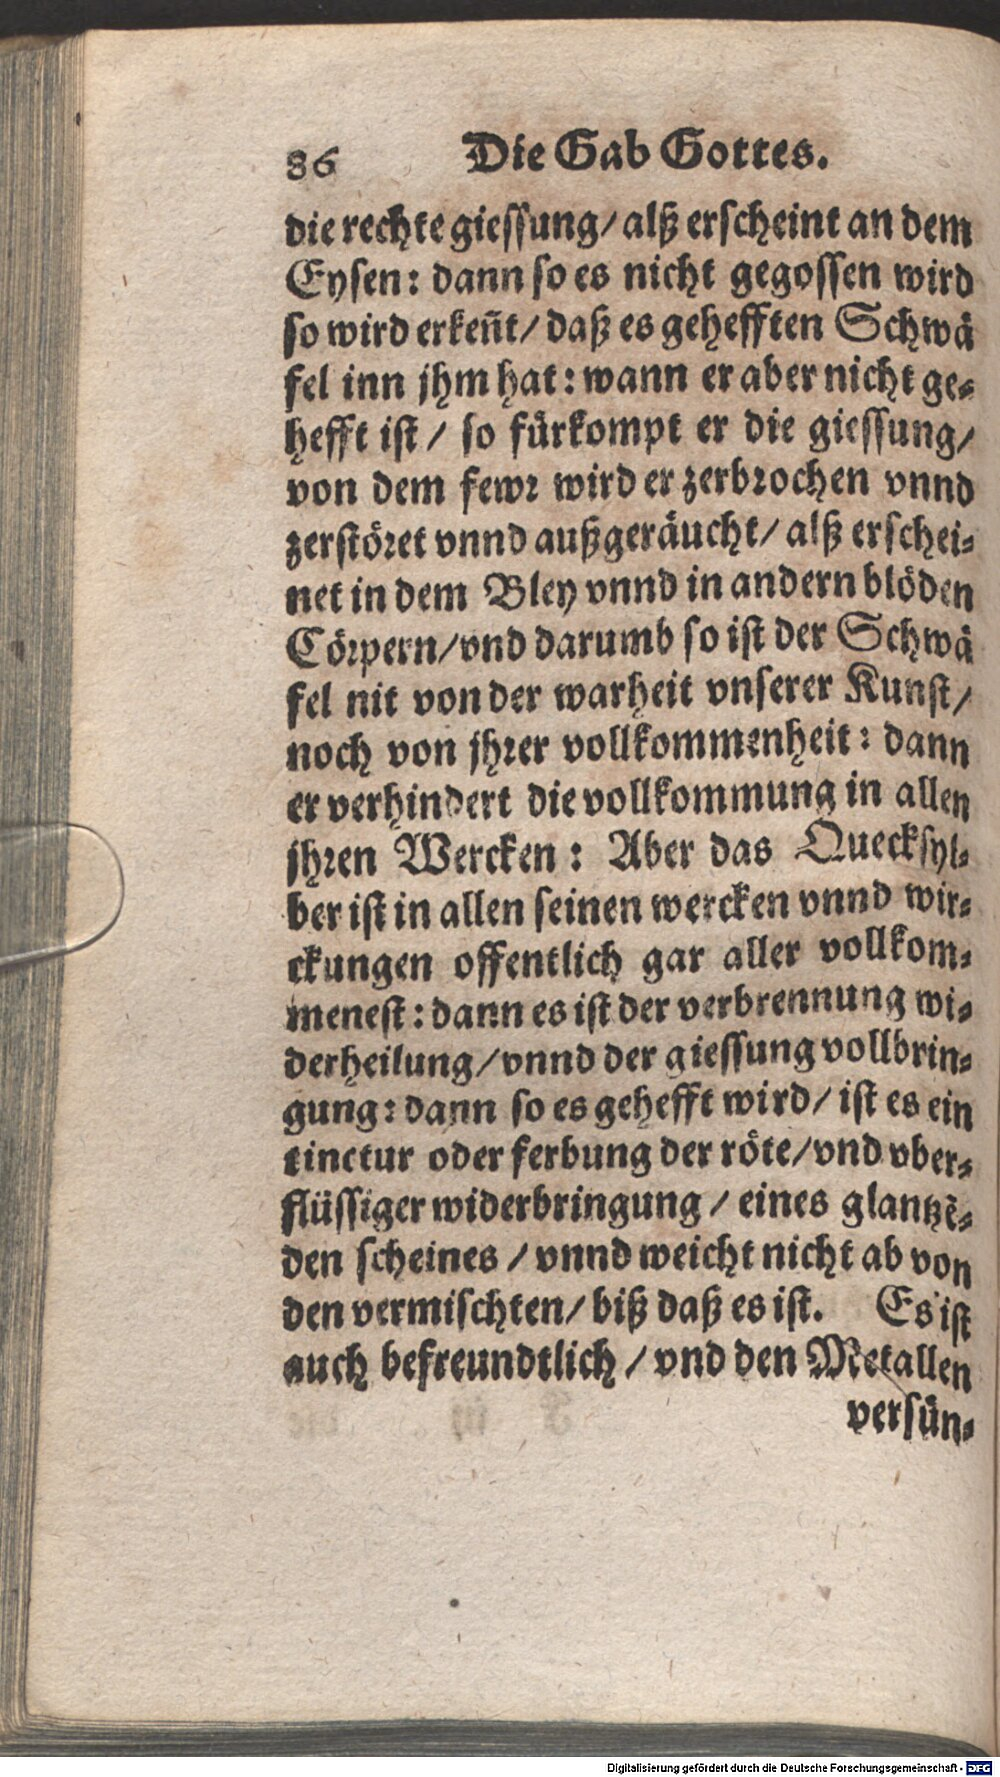 86 Die Gab Gottes.
die rechte giessung/ alß erscheint an dem
Eysen: dann so es nicht gegossen wird
so wird erkeñt/ daß es gehefften Schwä
fel inn jhm hat: wann er aber nicht ge-
hefft ist/ so fürkompt er die giessung/
von dem fewr wird er zerbrochen vnnd
zerstöret vnnd außgeräucht/ alß erschei-
net in dem Bley vnnd in andern blöden
Cörpern/ vnd darumb so ist der Schwä
fel nit von der warheit vnserer Kunst/
noch von jhrer vollkommenheit: dann
er verhindert die vollkommung in allen
jhren Wercken: Aber das Quecksyl-
ber ist in allen seinen wercken vnnd wir-
ckungen offentlich gar aller vollkom-
menest: dann es ist der verbrennung wi-
derheilung/ vnnd der giessung vollbrin-
gung: dann so es gehefft wird/ ist es ein
tinctur oder ferbung der röte/ vnd vber-
flüssiger widerbringung/ eines glantzẽ-
den scheines/ vnnd weicht nicht ab von
den vermischten/ biß daß es ist. Es ist
auch befreundtlich/ vnd den Metallen
versün-
Digitalisierung gefördert durch die Deutsche Forschungsgemeinschaft - DFG